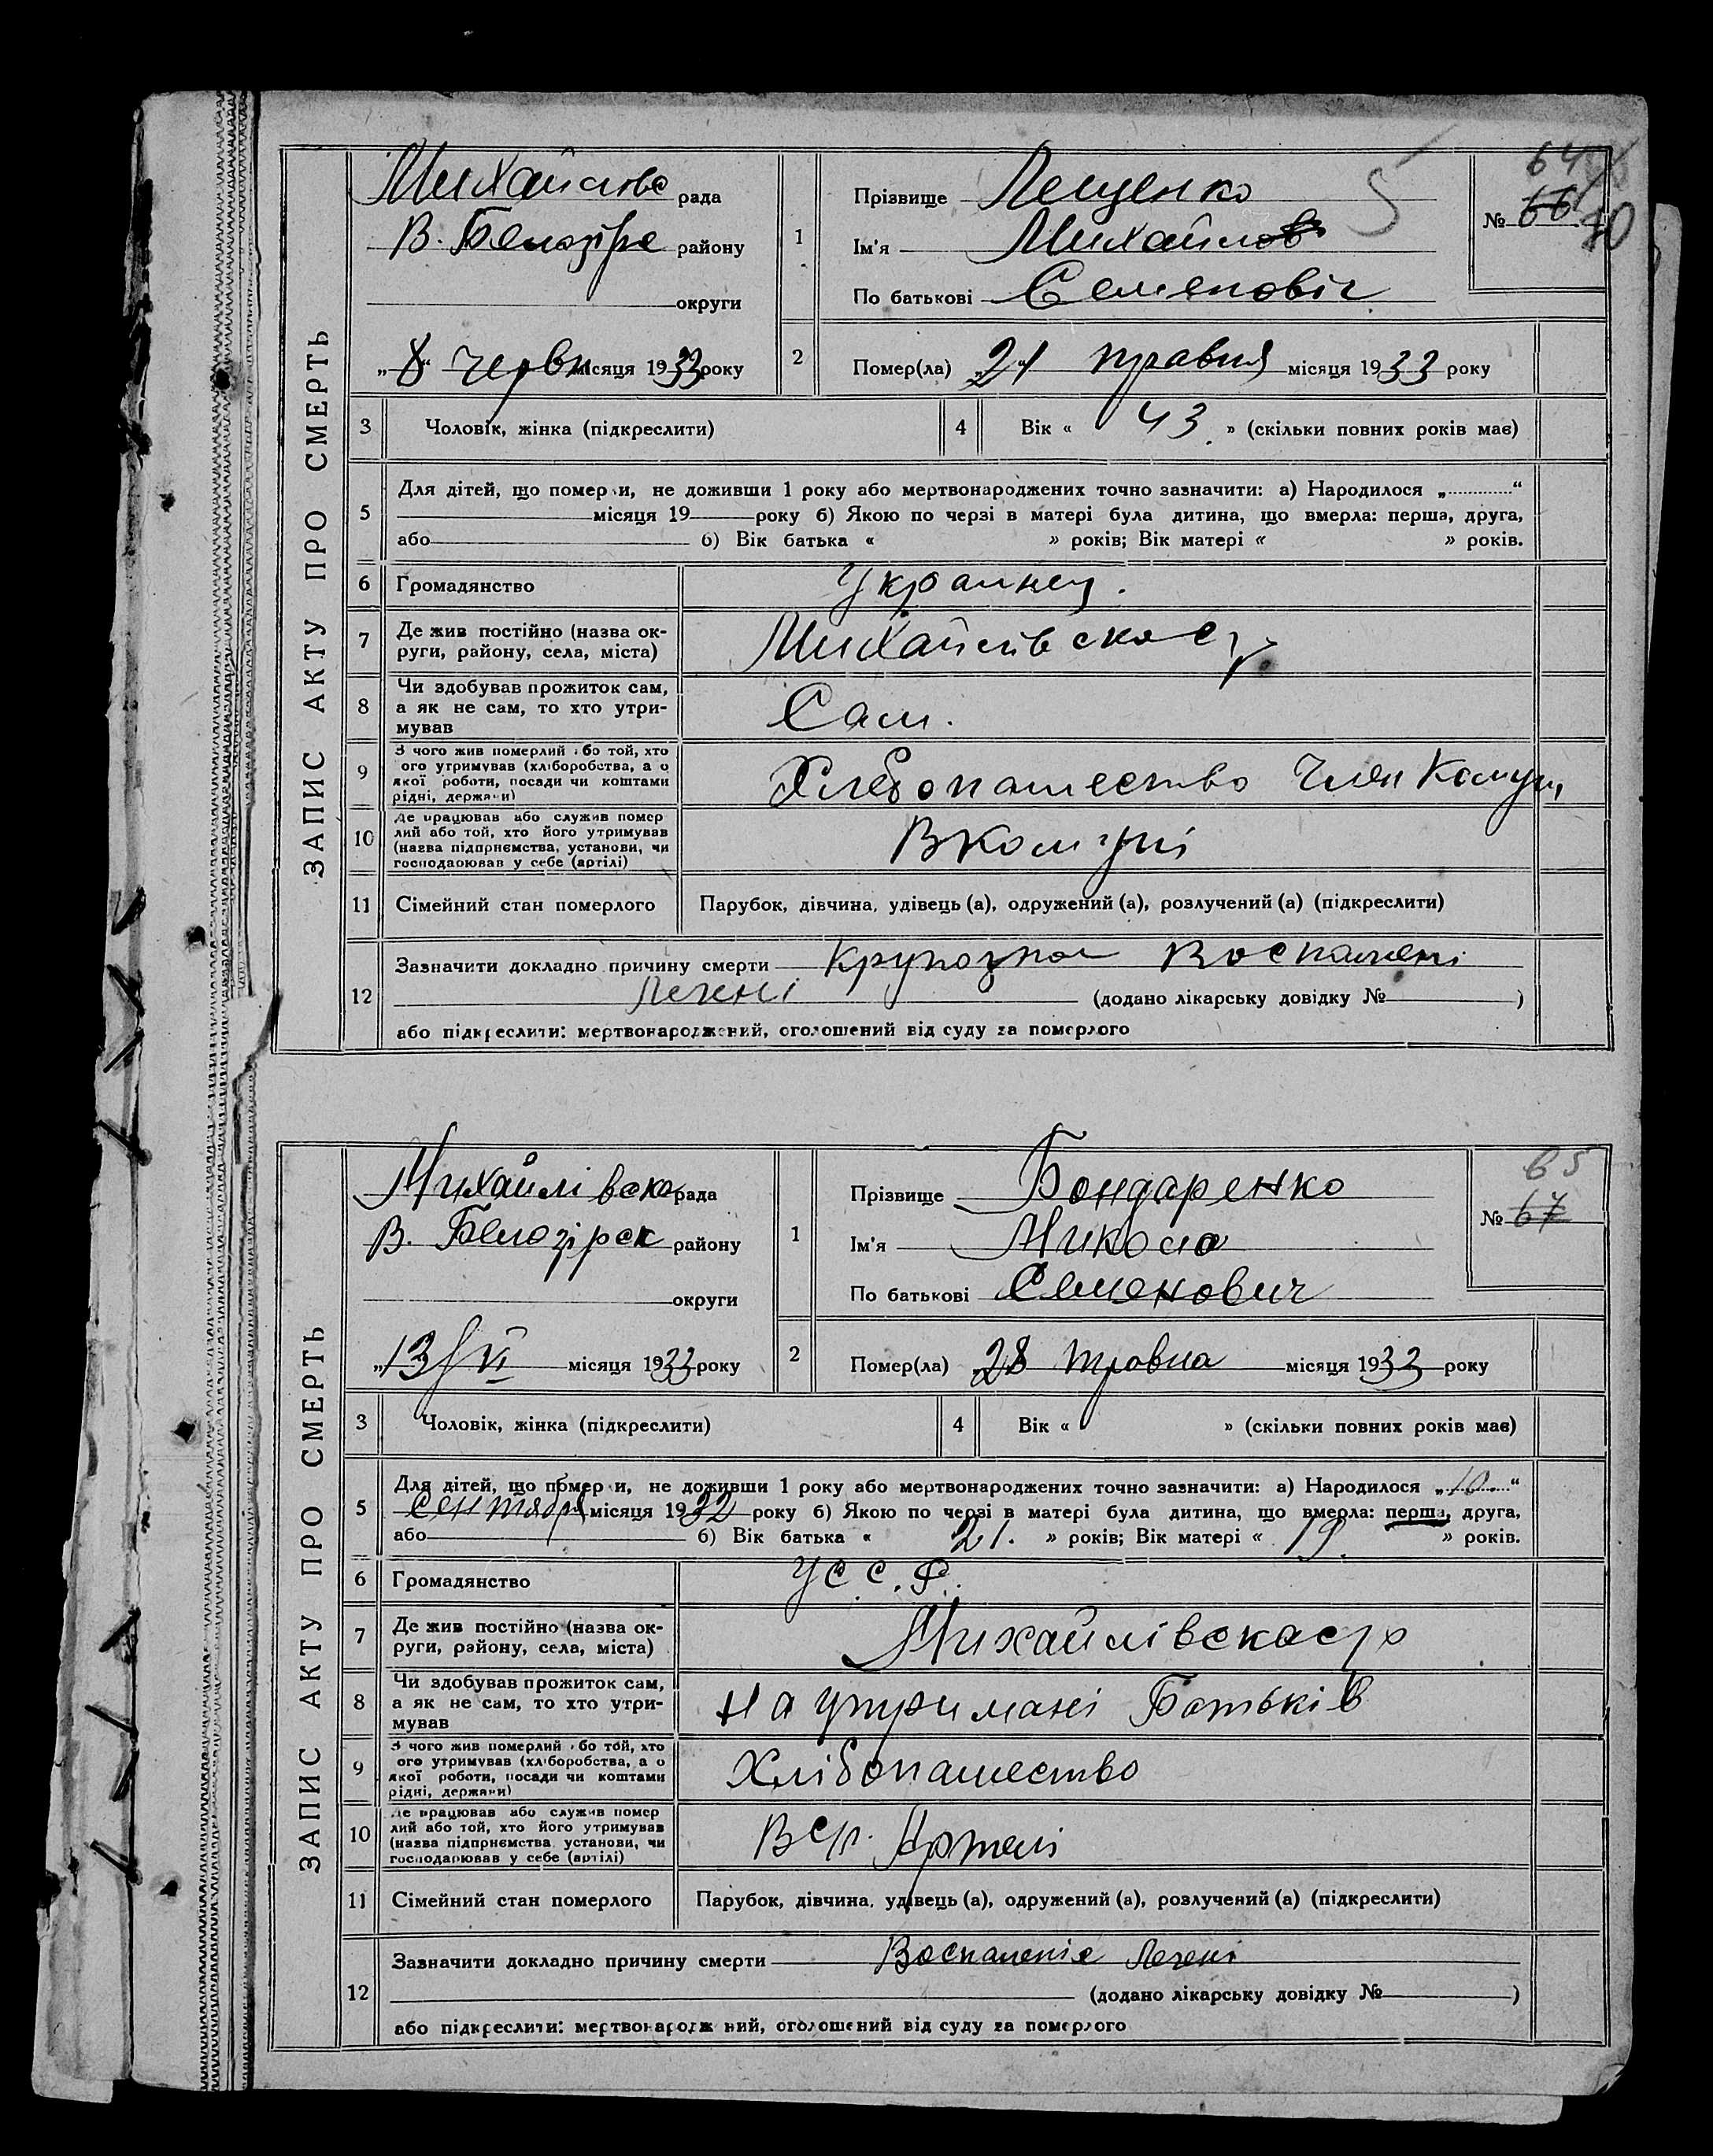 ЗАПИС АКТУ ПРО СМЕРТЬ
Михайлівс рада
В. Белозірс району
округи
„8“ червн місяця 1933 року
1
Прізвище Лещенко
Ім'я Михайло
По батькові Семеновіч
№ 66
64
5
2
Помер(ла) 21 травня місяця 1933 року
3 Чоловік, жінка (підкреслити)
4 Вік « 43 » (скільки повних років має)
5
Для дітей, що померли, не доживши 1 року або мертвонароджених точно зазначити: а) Народилося „............“
місяця 19 року б) Якою по черзі в матері була дитина, що вмерла: перша, друга,
або б) Вік батька « » років; Вік матері « » років.
6 Громадянство Украинец.
7 Де жив постійно (назва ок-
руги, району, села, міста)
Михайлівска с/р
8 Чи здобував прожиток сам,
а як не сам, то хто утри-
мував
Сам.
9 З чого жив померлий або той, хто
ого утримував (хліборобства, а о
якої роботи, посади чи коштами
рідні, держави)
Хлебопашество Член Комун
10 Де працював або служив помер
лий або той, хто його утримував
(назва підприємства, установи, чи
господарював у себе (артілі)
В Комуні
11 Сімейний стан померлого Парубок, дівчина, удівець (а), одружений (а), розлучений (а) (підкреслити)
12
Зазначити докладно причину смерти Крупозное Воспалені
Легені (додано лікарську довідку № )
або підкреслити: мертвонароджений, оголошений від суду за померлого
ЗАПИС АКТУ ПРО СМЕРТЬ
Михайлівска рада
В. Белозірск району
округи
„13/VI місяця 1933 року
1
Прізвище Бондаренко
Ім'я Микола
По батькові Семенович
65
№ 67
2
Помер(ла) 28 травна місяця 1933 року
3 Чоловік, жінка (підкреслити)
4 Вік « » (скільки повних років має)
5
Для дітей, що померли, не доживши 1 року або мертвонароджених точно зазначити: а) Народилося „10“
Сентября місяця 1932 року б) Якою по черзі в матері була дитина, що вмерла: перша, друга,
або б) Вік батька « 21. » років; Вік матері « 19. » років.
6 Громадянство УССР.
7 Де жив постійно (назва ок-
руги, району, села, міста)
Михайлівска с/р
8 Чи здобував прожиток сам,
а як не сам, то хто утри-
мував
на утримані Батьків
9 З чого жив померлий або той, хто
ого утримував (хліборобства, а о
якої роботи, посади чи коштами
рідні, держави)
Хлібопашество
10 Де працював або служив помер
лий або той, хто його утримував
(назва підприємства, установи, чи
господарював у себе (артілі)
В с/г. Артелі
11 Сімейний стан померлого Парубок, дівчина, удівець (а), одружений (а), розлучений (а) (підкреслити)
12
Зазначити докладно причину смерти Воспаленіе Легені
(додано лікарську довідку № )
або підкреслити: мертвонароджений, оголошений від суду за померлого